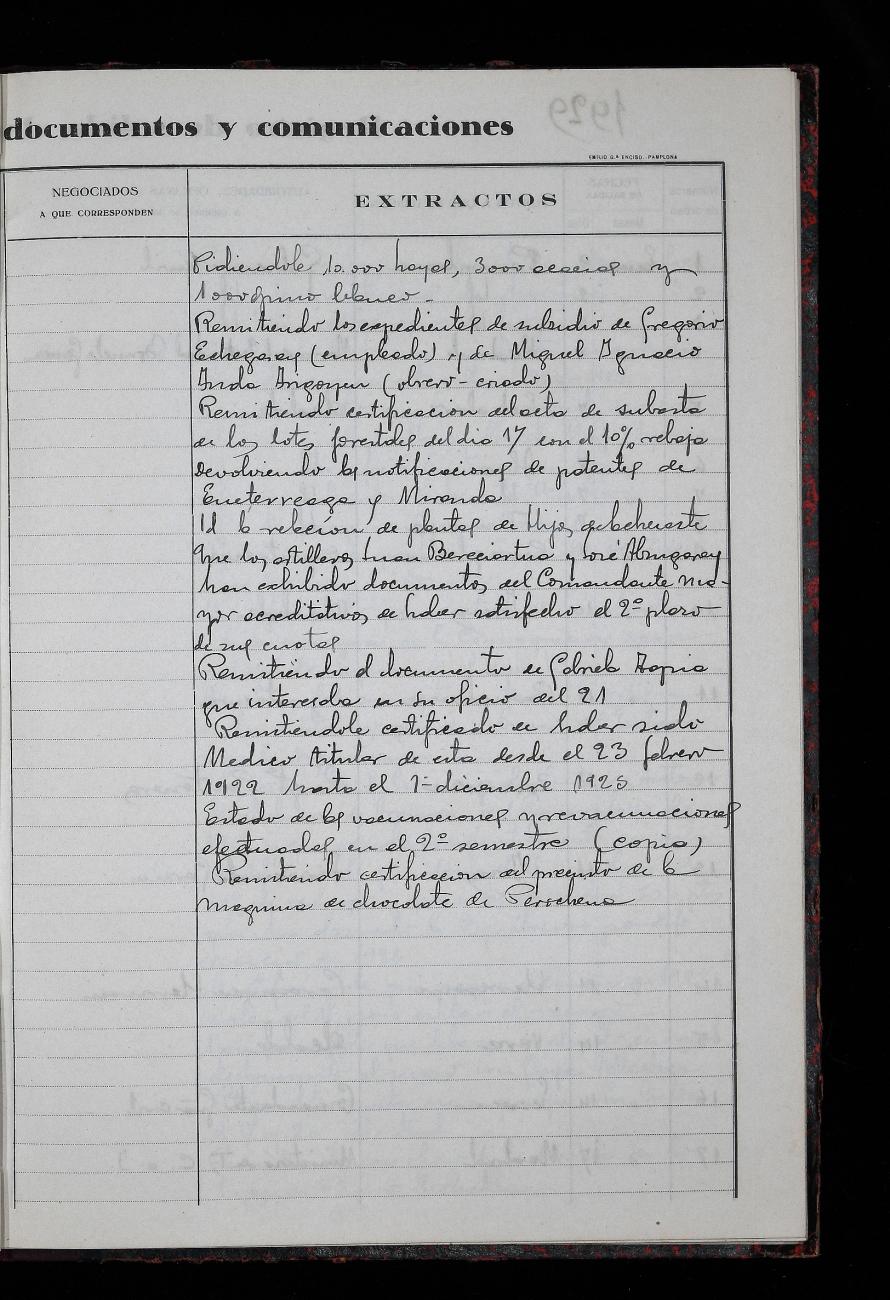 documentos y comunicaciones
EMILIO G.ª ENCISO.-PAMPLONA
NEGOCIADOS
A QUE CORRESPONDEN
EXTRACTOS
Pidiendole 10.000 hayas, 3000 acacias y
1000 espino blanco -
Remitiendo los expedientes de subsidio de Gregorio
Echegaray (empleado) y de Miguel Ignacio
Inda Irigoyen (obrero-criado)
Remitiendo certificacion del acta de subasta
de los lotes forestales del dia 17 con el 10% rebaja
Devolviendo las notificaciones de patentes de
y Miranda
Id la relación de plantas de Hijos
Que los artilleros Juan Bereciartua y José
han exhibido documentos del Comandante ma-
yor acreditativos de haber satisfecho el 2º plazo
de sus cuotas
Remitiendo el documento de Gabriela Tapia
que interesaba en su oficio del 21
Remitiendole certificado de haber sido
Medico titular de esta desde el 23 febrero
1922 hasta el 1º diciembre 1925
Estado de las vacunaciones y revacunaciones
efectuadas en el 2º semestre (copia)
Remitiendo certificacion del precinto de la
maquina de chocolate de Perochena